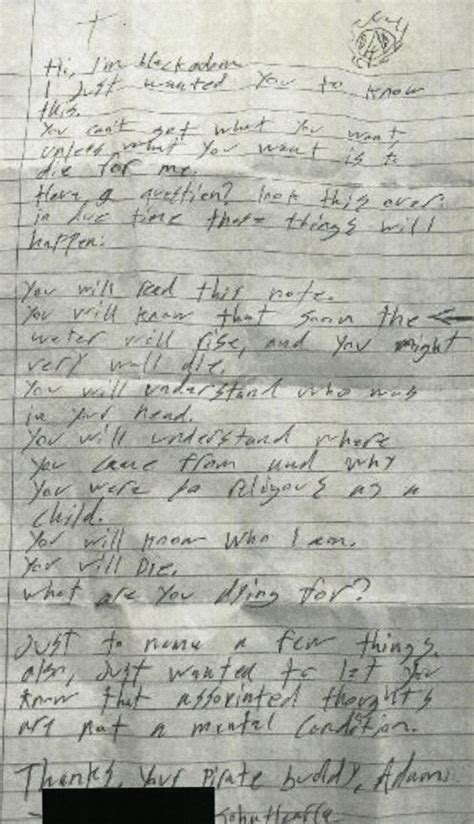 Hi, I'm black adam
I just wanted you to know
this.
You can't get what you want,
unless what you want is to
die for me.
Have a question? look this over.
in due time these things will
happen:
You will read this note.
You will know that soon the
water will rise, and you might
very well die.
You will understand who was
in your head.
You will understand where
you came from and why
you were so religous as a
child.
You will know who I am.
You will Die.
What are you dying for?
Just to name a few things.
also, Just wanted to let you
know that assorinted thoughts
are not a mental condition.
Thanks, your Pirate buddy, Adam